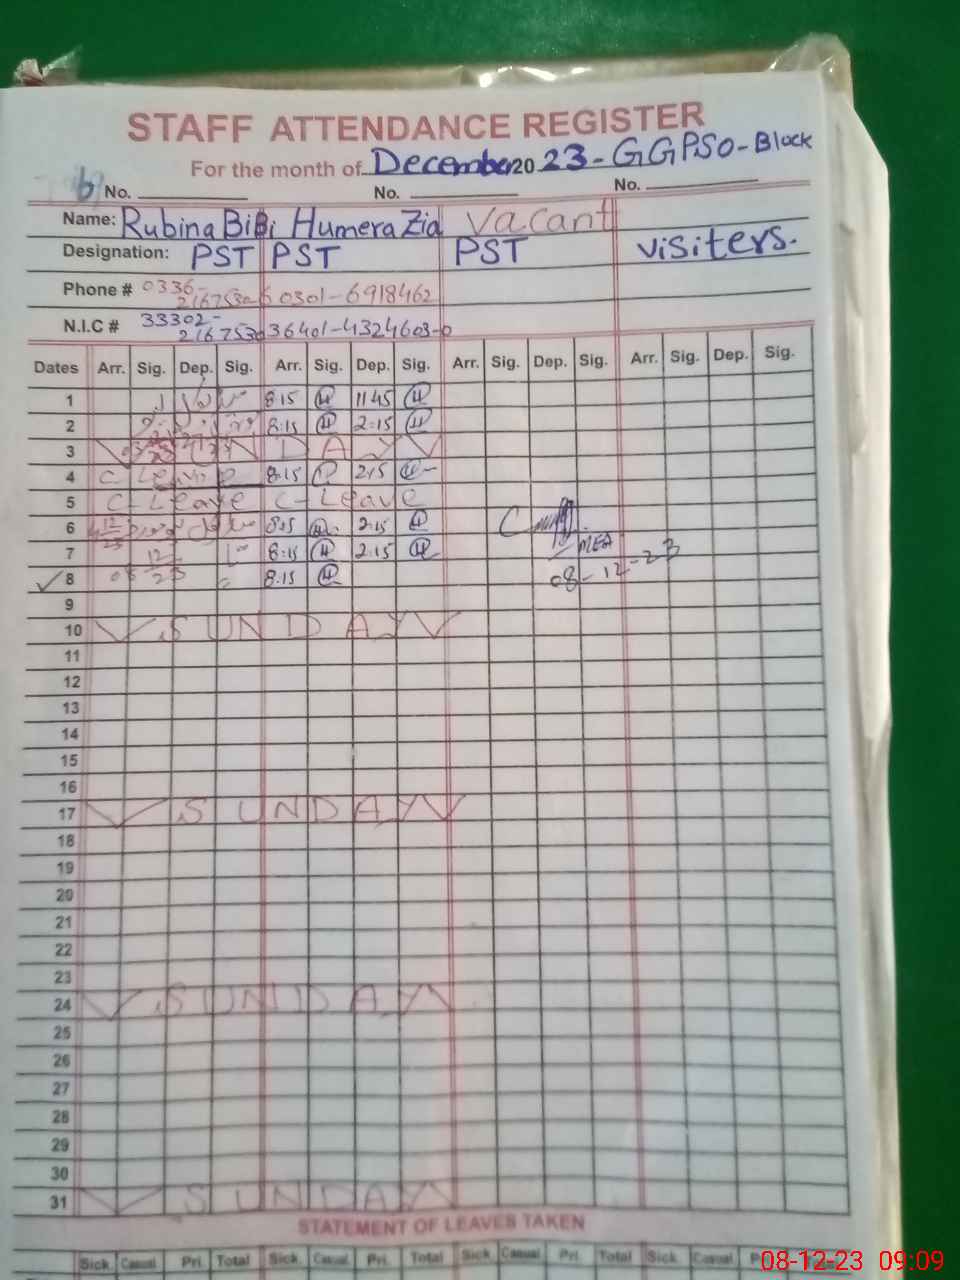 STAFF ATTENDANCE REGISTER
For the month of December 2023 - GGPSO - Block
No. No. No.
Name: Rubina BiBi Humera Zia Vacant
Designation: PST PST PST Visiters.
Phone # 0336- 0301-6918462
N.I.C # 33302- 36401-4324603-0
Dates Arr. Sig. Dep. Sig. Arr. Sig. Dep. Sig. Arr. Sig. Dep. Sig. Arr. Sig. Dep. Sig.
1 8:15 11 45
2 8:15 2:15
3 SUNDAY
4 C Leave 8:15 2:15
5 C-Leave C-Leave
6 8:15 2:15
7 8:15 2:15 MEA
8 8:15 08-12-23
9
10 SUNDAY
11
12
13
14
15
16
17 SUNDAY
18
19
20
21
22
23
24 SUNDAY
25
26
27
28
29
30
31 SUNDAY
STATEMENT OF LEAVES TAKEN
Sick. Casual Pri. Total Sick. Casual Pri. Total Sick. Casual Pri. Total Sick. Casual
08-12-23 09:09